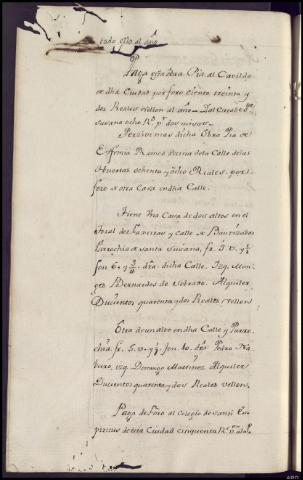 todo ello al año
Paga esta obra Pia al Cavildo
de dha Ciudad por foro ciento treinta y
dos Reales vellon al año
Susana ocho Rs pr dos misas
Percive mas dicha Obra Pia de
Eufemia Ramos vecina de la Calle de las
Huertas ochenta y ocho Reales por
foro de otra Casa en dha Calle.
Tiene dha Casa de dos altos en el
y calle de Bautizados
Parrochia de Santa Susana, fr. 5. v. y ½
fon 6 y ¾ dra. dicha Calle. Izq. Mon-
ges Bernardos de Sobrado. Alquiler
Ducientos quarenta y dos Reales vellon
Otra de un alto en dha Calle y Parro-
cha. fr. 5. v. y ½ fon. 10. dra Pedro
izq. Domingo Martinez Alquiler
Ducientos quarenta y dos Reales vellon.
Paga de foro al Colegio de Santi Es-
piritus de esta Ciudad cinquenta Rs vn al año